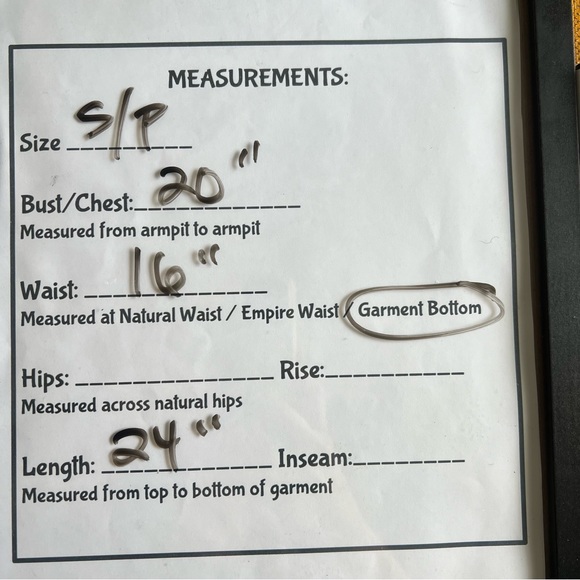 MEASUREMENTS:
Size S/P
Bust/Chest: 20"
Measured from armpit to armpit
Waist: 16"
Measured at Natural Waist / Empire Waist / Garment Bottom
Hips: ____________ Rise: ____________
Measured across natural hips
Length: 24" Inseam: ____________
Measured from top to bottom of garment